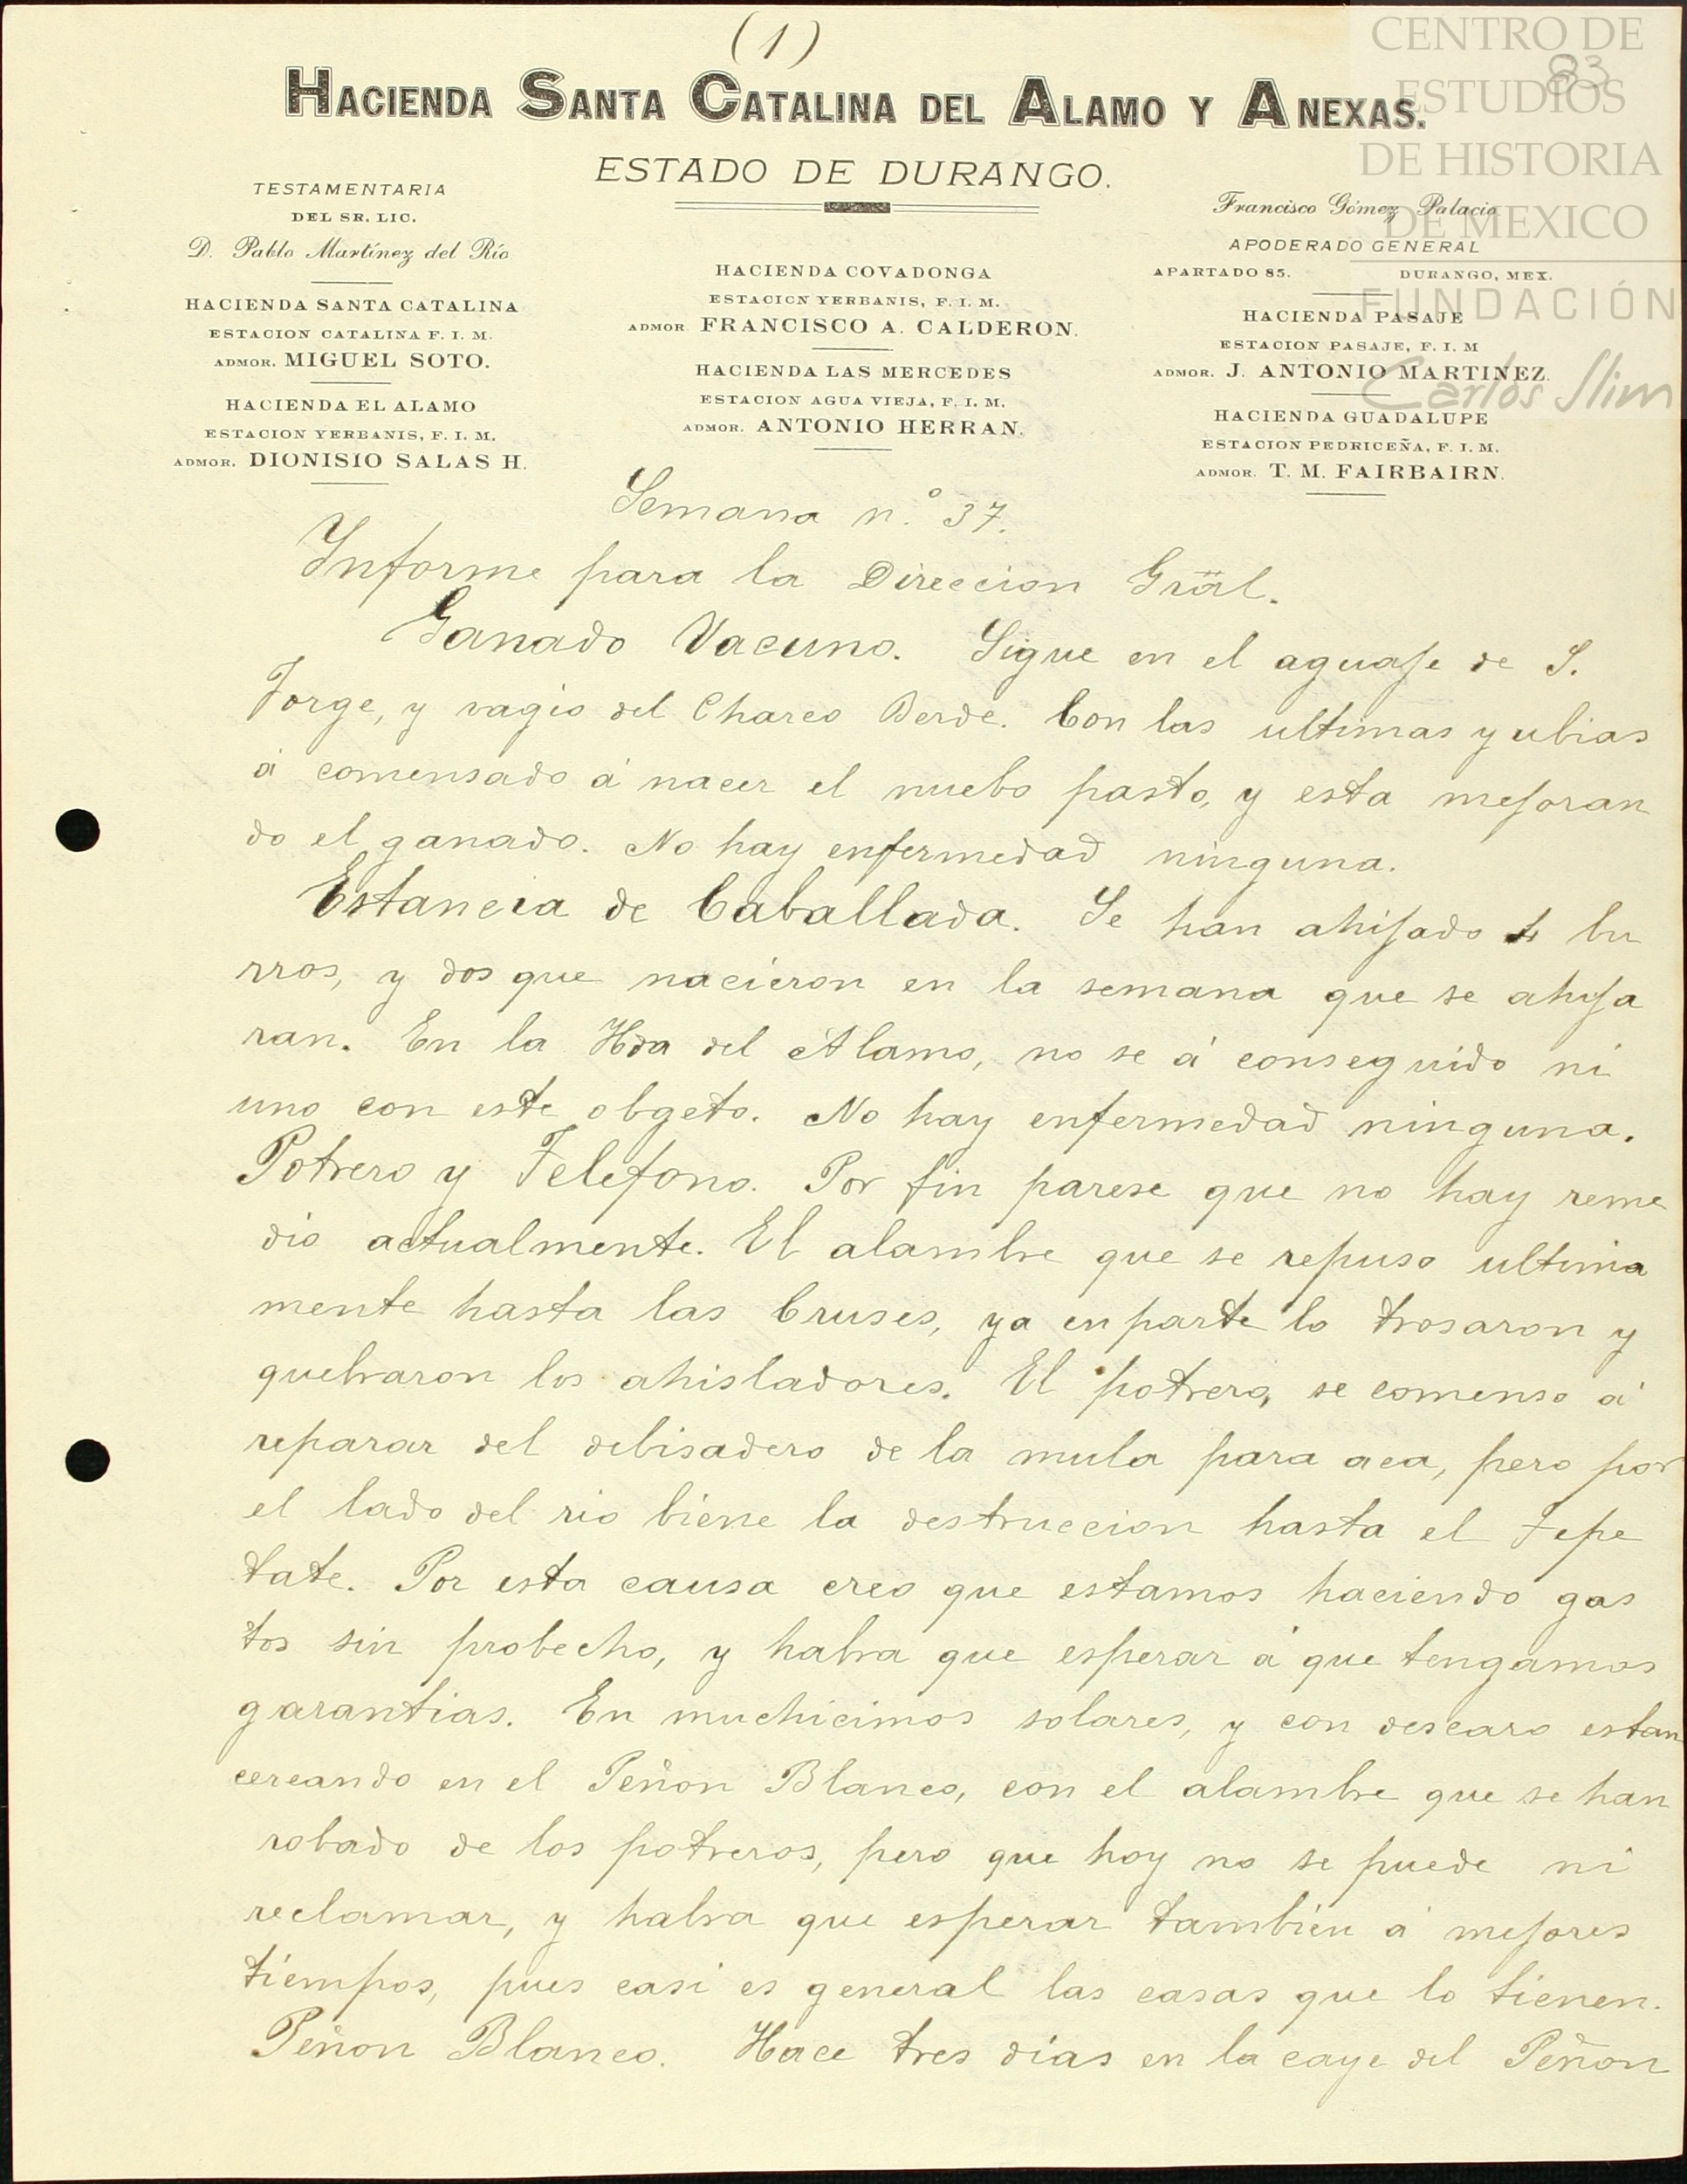 (1)
83
CENTRO DE
ESTUDIOS
DE HISTORIA
DE MEXICO
FUNDACIÓN
Carlos Slim
HACIENDA SANTA CATALINA DEL ALAMO Y ANEXAS.
ESTADO DE DURANGO.
TESTAMENTARIA
DEL SR. LIC.
D. Pablo Martínez del Río
HACIENDA SANTA CATALINA
ESTACION CATALINA F. I. M.
ADMOR. MIGUEL SOTO.
HACIENDA EL ALAMO
ESTACION YERBANIS, F. I. M.
ADMOR. DIONISIO SALAS H.
HACIENDA COVADONGA
ESTACION YERBANIS, F. I. M.
ADMOR FRANCISCO A. CALDERON.
HACIENDA LAS MERCEDES
ESTACION AGUA VIEJA, F. I. M.
ADMOR. ANTONIO HERRAN.
Francisco Gómez Palacio
APODERADO GENERAL
APARTADO 85. DURANGO, MEX.
HACIENDA PASAJE
ESTACION PASAJE, F. I. M
ADMOR. J. ANTONIO MARTINEZ.
HACIENDA GUADALUPE
ESTACION PEDRICEÑA, F. I. M.
ADMOR. T. M. FAIRBAIRN.
Semana n.° 37.
Informe para la Direccion Gräl.
Ganado Vacuno. Sigue en el aguaje de S.
Jorge, y vagio del Charco Berde. Con las ultimas yubias
á comensado á nacer el nuebo pasto, y esta mejoran
do el ganado. No hay enfermedad ninguna.
Estancia de Caballada. Se han ahijado 4 bu
rros, y dos que nacieron en la semana que se ahija
ran. En la Hda del Alamo, no se á conseguido ni
uno con este obgeto. No hay enfermedad ninguna.
Potrero y Telefono. Por fin parese que no hay reme
dio actualmente. El alambre que se repuso ultima
mente hasta las Cruses, ya en parte lo trosaron y
quebraron los ahisladores. El potrero, se comenso á
reparar del debisadero de la mula para aca, pero por
el lado del rio biene la destruccion hasta el Tepe
tate. Por esta causa creo que estamos haciendo gas
tos sin probecho, y habra que esperar á que tengamos
garantias. En muchicimos solares, y con descaro estan
cercando en el Peñon Blanco, con el alambre que se han
robado de los potreros, pero que hoy no se puede ni
reclamar, y habra que esperar tambien á mejores
tiempos, pues casi es general las casas que lo tienen.
Peñon Blanco. Hace tres dias en la caye del Peñon